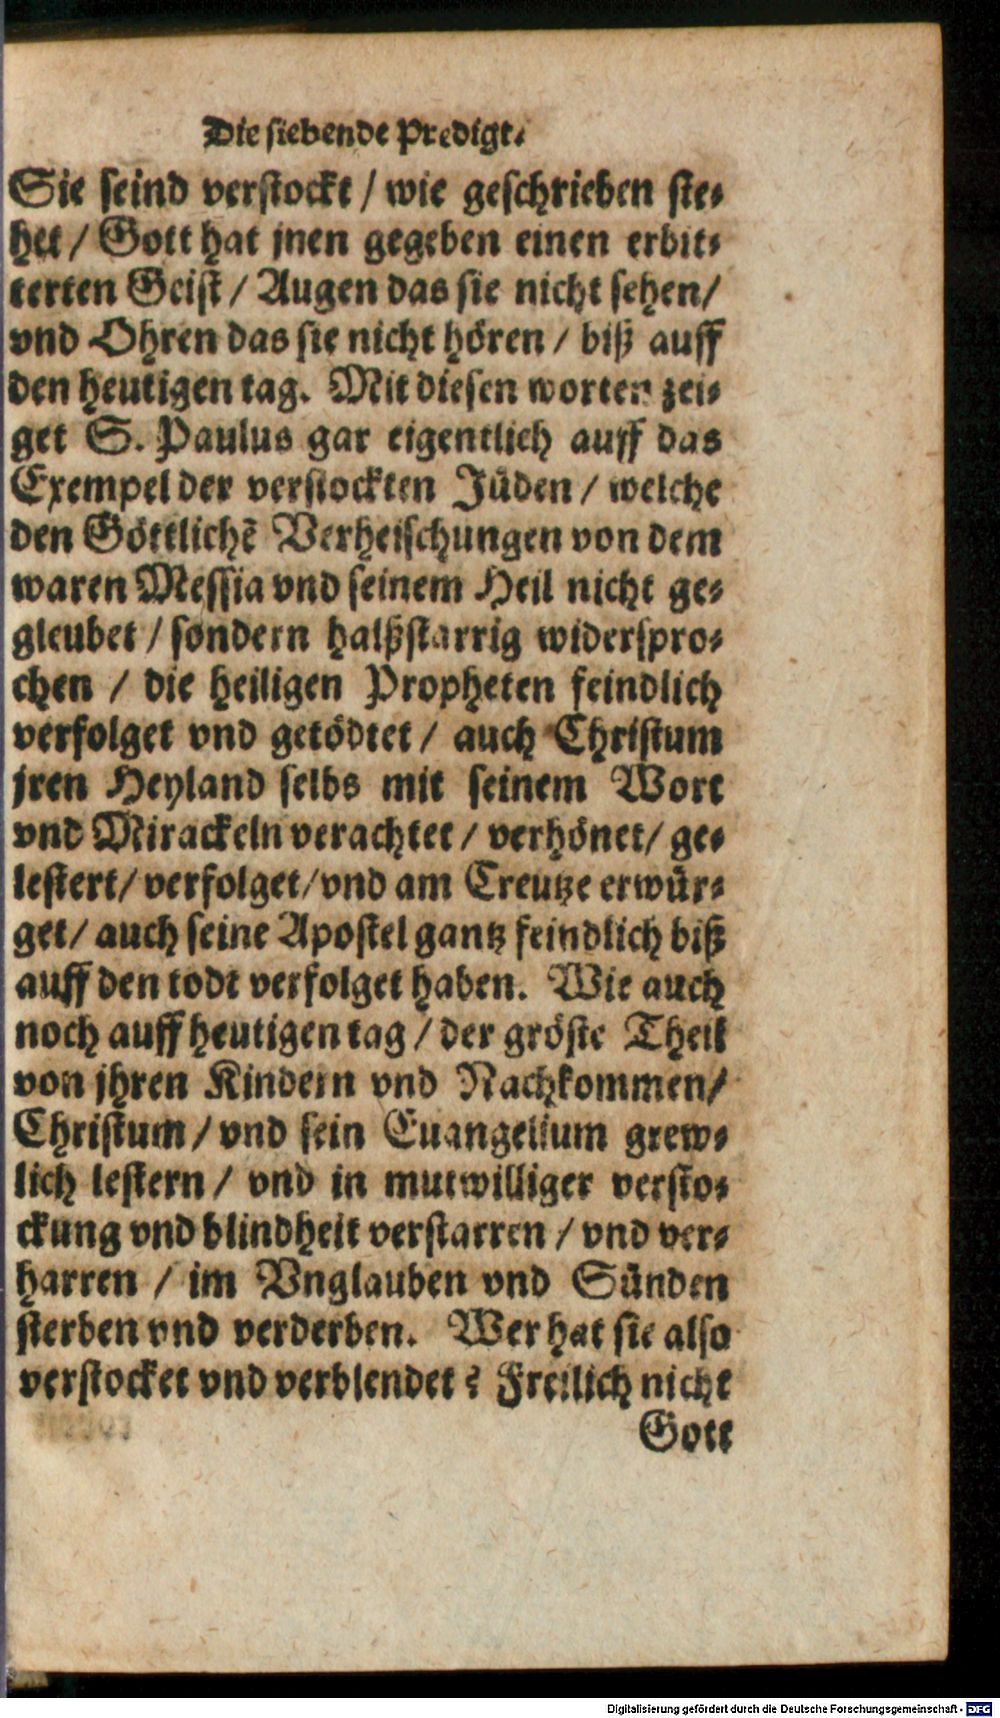 Die siebende Predigt.
Sie seind verstockt / wie geschrieben ste-
het / Gott hat jnen gegeben einen erbit-
terten Geist / Augen das sie nicht sehen /
vnd Ohren das sie nicht hören / biß auff
den heutigen tag. Mit diesen worten zei-
get S. Paulus gar eigentlich auff das
Exempel der verstockten Jüden / welche
den Göttlichē Verheischungen von dem
waren Messia vnd seinem Heil nicht ge-
gleubet / sondern halßstarrig widerspro-
chen / die heiligen Propheten feindlich
verfolget vnd getödtet / auch Christum
jren Heyland selbs mit seinem Wort
vnd Mirackeln verachtet / verhönet / ge-
lestert / verfolget / vnd am Creutze erwür-
get / auch seine Apostel gantz feindlich biß
auff den todt verfolget haben. Wie auch
noch auff heutigen tag / der gröste Theil
von jhren Kindern vnd Nachkommen /
Christum / vnd sein Euangelium grew-
lich lestern / vnd in mutwilliger versto-
ckung vnd blindheit verstarren / vnd ver-
harren / im Vnglauben vnd Sünden
sterben vnd verderben. Wer hat sie also
verstocket vnd verblendet? Freilich nicht
Gott
Digitalisierung gefördert durch die Deutsche Forschungsgemeinschaft - DFG